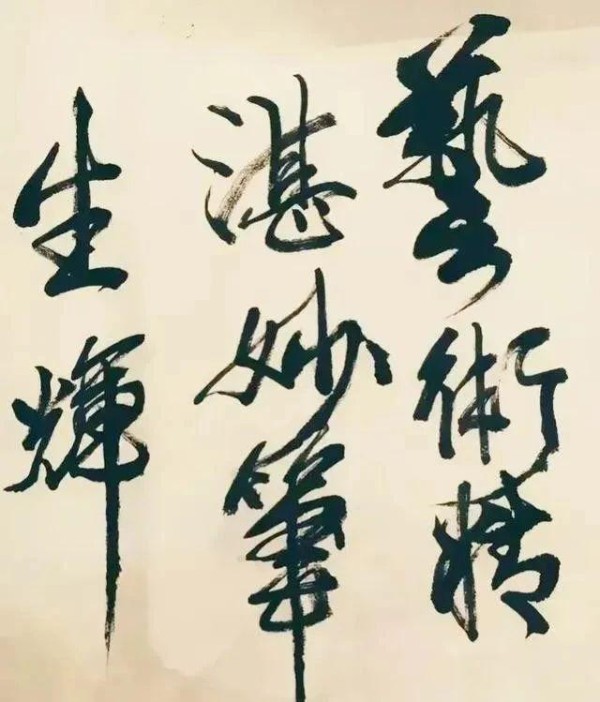 藝術精
湛妙筆
生輝